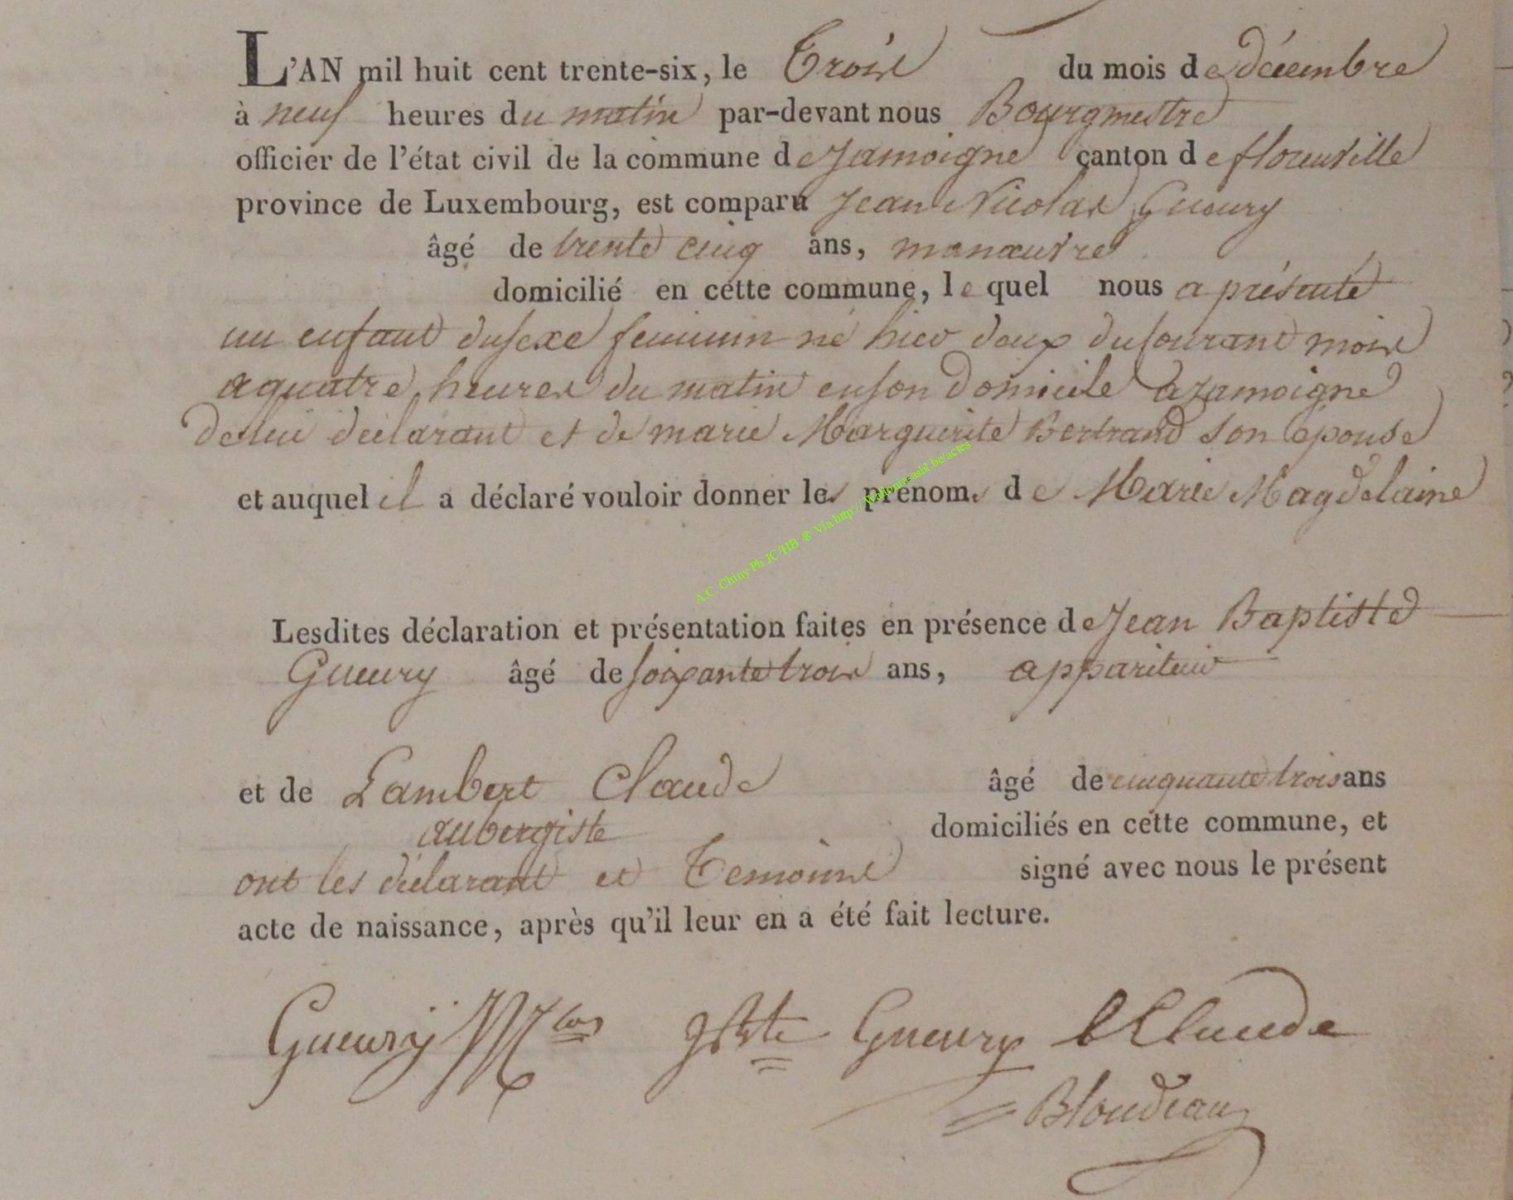 L'AN mil huit cent trente-six, le Trois du mois de décembre
à neuf heures du matin par-devant nous Bourgmestre
officier de l'état civil de la commune de jamoigne canton de florenville
province de Luxembourg, est comparu jean Nicolas Gueury
âgé de trente cinq ans, manœuvre
domicilié en cette commune, le quel nous a présenté
un enfant du sexe feminin né hier deux du courant mois
a quatre heures du matin en son Domicile a jamoigne
de lui déclarant et de marie Marguerite Bertrand son épouse
et auquel il a déclaré vouloir donner les prénoms de Marie Magdelaine
A.C. Chiny Ph JC/HB ® Via
Lesdites déclaration et présentation faites en présence de Jean Baptiste
Gueury âgé de soixante trois ans, appariteur
et de Lambert Claude âgé de cinquante trois ans
aubergiste domiciliés en cette commune, et
ont les déclarant et Temoins signé avec nous le présent
acte de naissance, après qu'il leur en a été fait lecture.
Gueury Nlas JBte Gueury L Claude
Blondeau